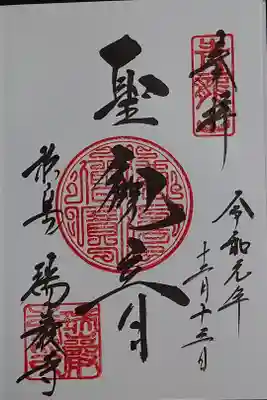 奉拝
令和元年
十二月十三日
聖観音
松島 瑞巖寺